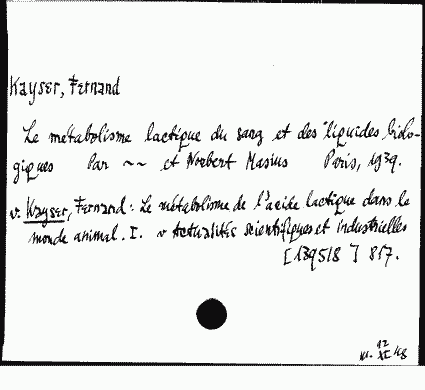 Kayser, Fernand
Le métabolisme lactique du sang et des liquides biolo-
giques Par ~~ et Norbert Masius Paris, 1939.
v. Kayser, Fernand: Le métabolisme de l'acide lactique dans le
monde animal. I. v Actualités scientifiques et industrielles
[139518] 817.
12
XI 48